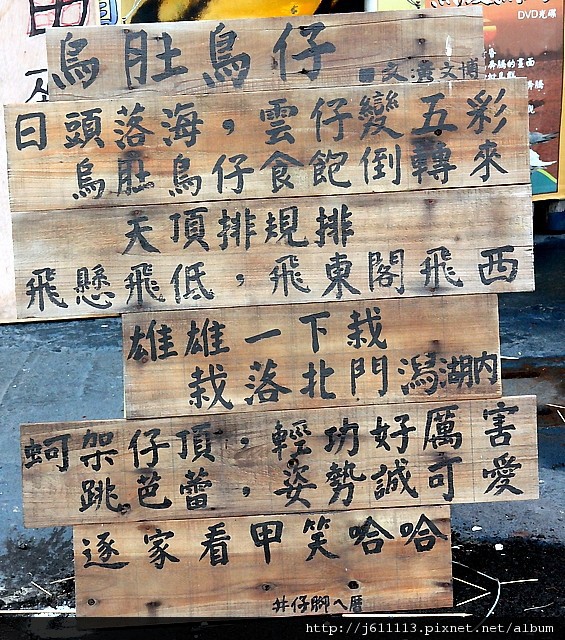 烏肚鳥仔
文·黃文博
日頭落海，雲仔變五彩
烏肚鳥仔食飽倒轉來
天頂排規排
飛懸飛低，飛東閣飛西
雄雄一下栽
栽落北門潟湖內
蚵架仔頂，輕功好厲害
跳芭蕾，姿勢誠可愛
逐家看甲笑哈哈
井仔腳ㄟ厝
DVD光碟
http://j611113.pixnet.net/album